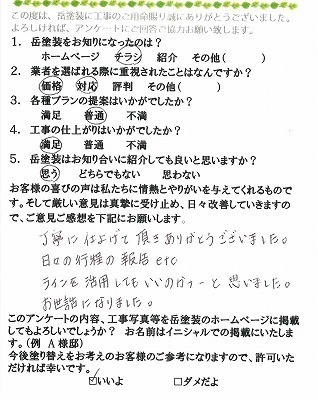 この度は、岳塗装に工事のご用命賜り誠にありがとうございました。
よろしければ、アンケートにご回答ご協力お願い致します。
1. 岳塗装をお知りになったのは？
ホームページ　チラシ　紹介　その他(　　　)
2. 業者を選ばれる際に重視されたことはなんですか？
価格　対応　評判　その他(　　　)
3. 各種プランの提案はいかがでしたか？
満足　普通　不満
4. 工事の仕上がりはいかがでしたか？
満足　普通　不満
5. 岳塗装はお知り合いに紹介しても良いと思いますか？
思う　どちらでもない　思わない
お客様の喜びの声は私たちに情熱とやりがいを与えてくれるもので
す。そして厳しい意見は真摯に受け止め、日々改善していきますの
で、ご意見ご感想を下記にお願いします。
丁寧に仕上げて頂きありがとうございました。
日々の行程の報告etc
ラインを活用してもいいのかなーと思いました。
お世話になりました。
このアンケートの内容、工事写真等を岳塗装のホームページに掲載
してもよろしいでしょうか？　お名前はイニシャルでの掲載にいたしま
す。（例　A 様邸）
今後塗り替えをお考えのお客様のご参考になりますので、許可いた
だければ幸いです。
☑いいよ　　□ダメだよ